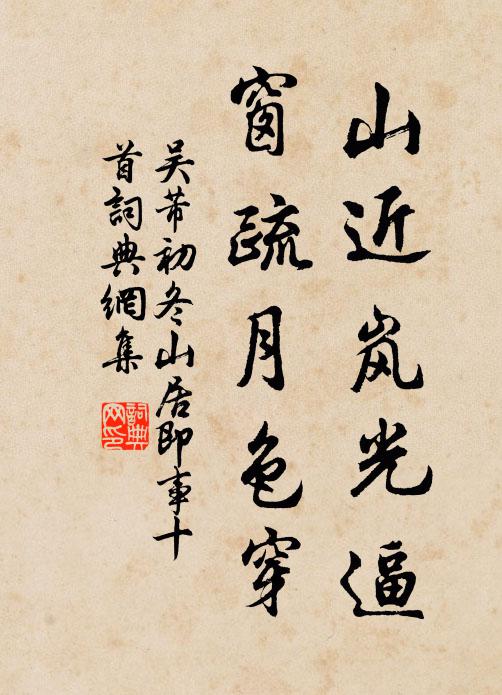 山近岚光逼
窗疏月色穿
吴芾初冬山居即事十
首詞典網集
詞典网印